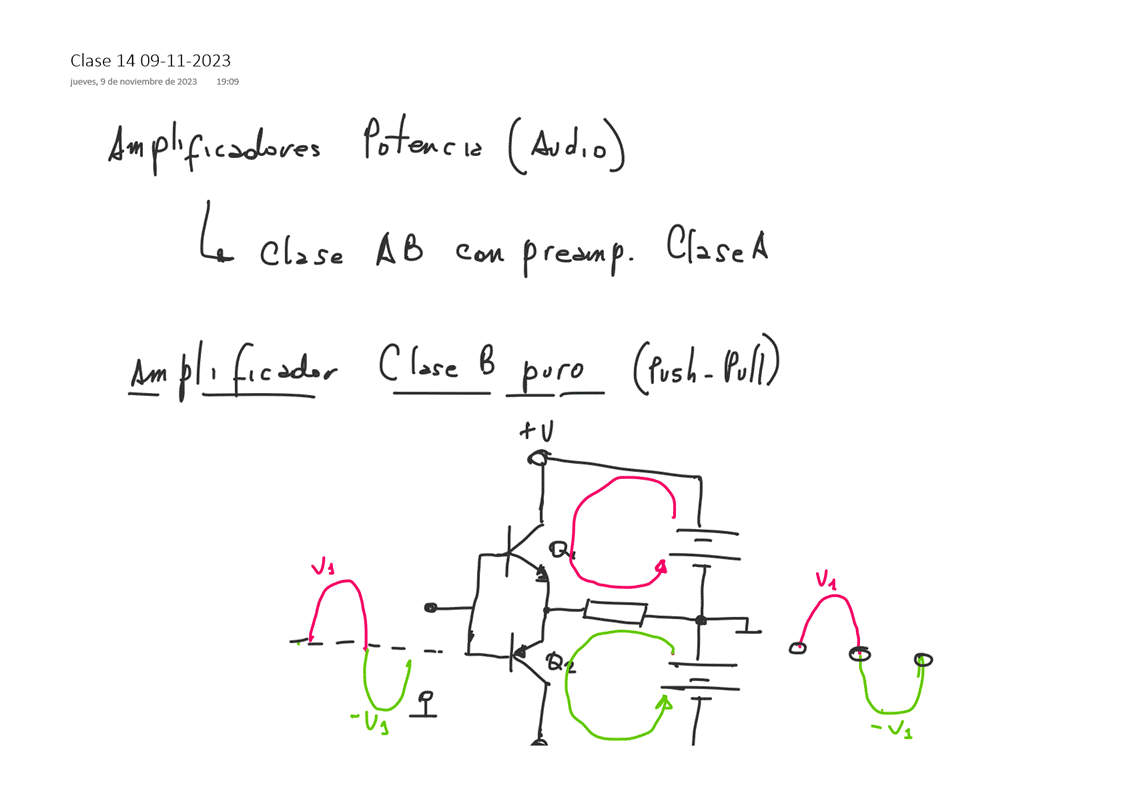 Clase 14 09-11-2023
jueves, 9 de noviembre de 2023 19:09
Amplificadores Potencia (Audio)
Clase AB con preamp. Clase A
Amplificador Clase B puro (Push-Pull)
+V
Q1
V1
V1
Q2
-V1
-V1